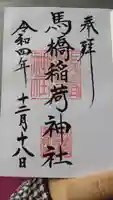 奉拝
馬橋稲荷神社
令和四年
十二月十八日